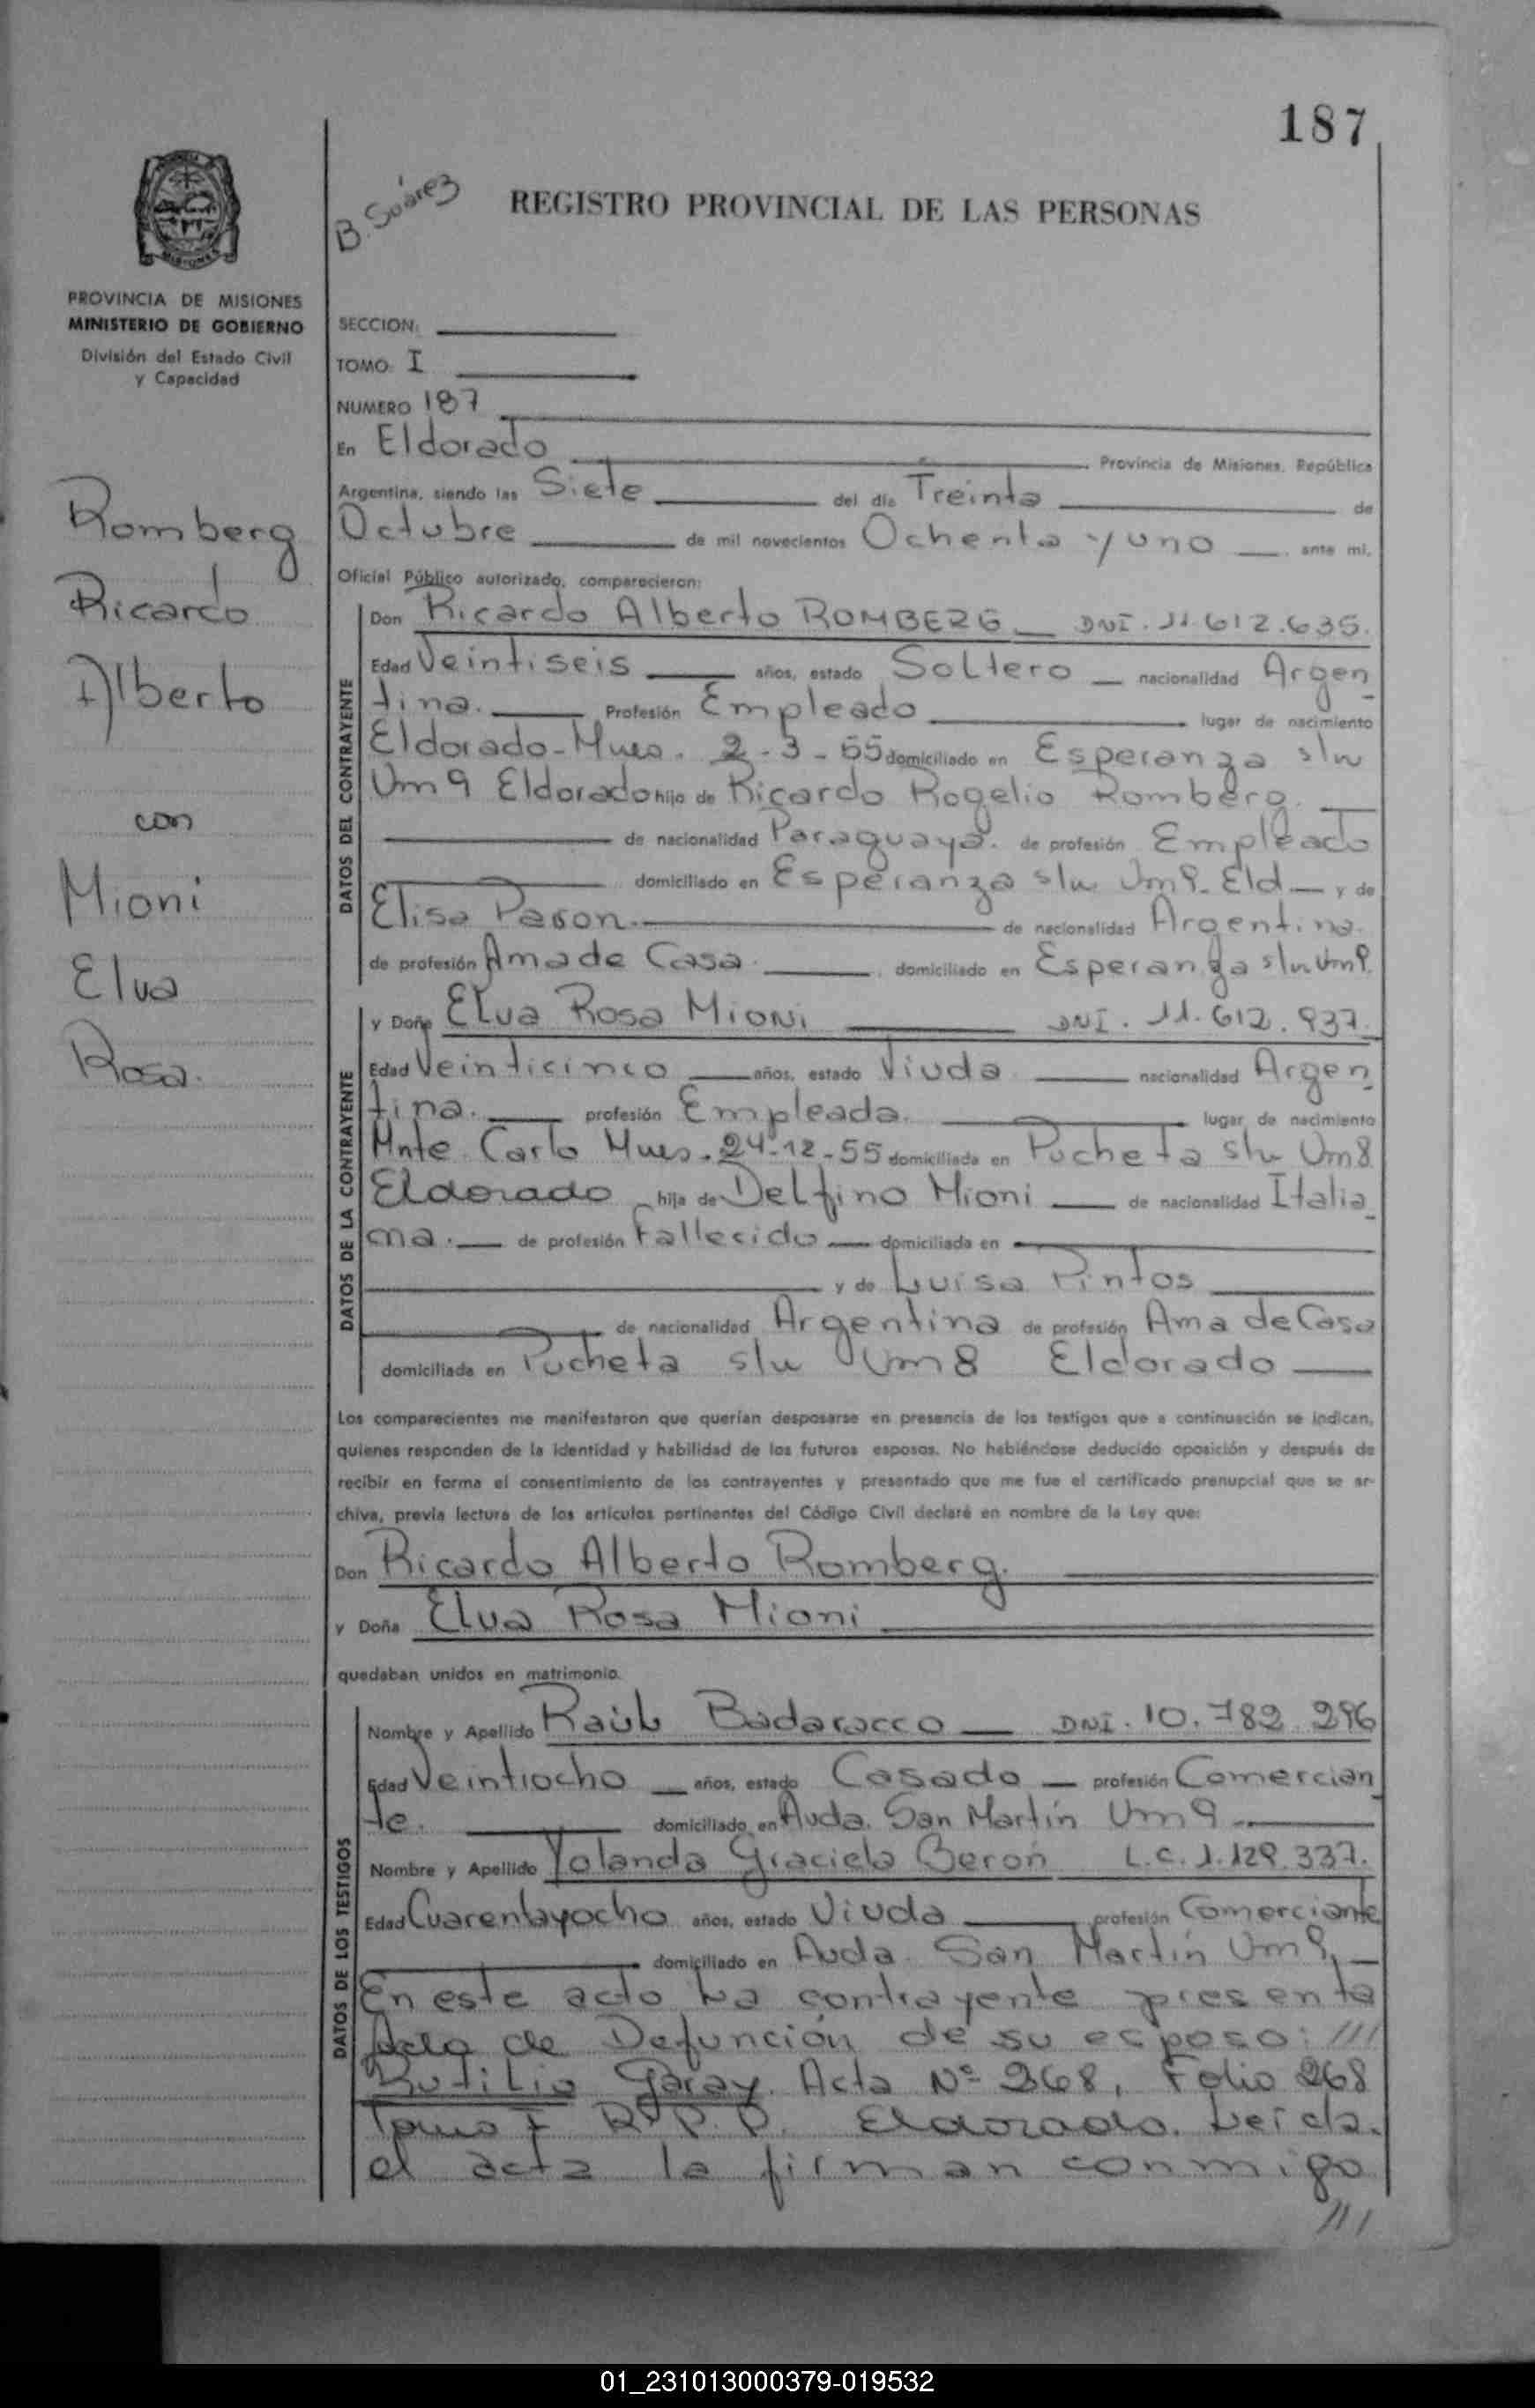 187
B. Suárez
REGISTRO PROVINCIAL DE LAS PERSONAS
PROVINCIA DE MISIONES
MINISTERIO DE GOBIERNO
División del Estado Civil
y Capacidad
SECCION:
TOMO: I
NUMERO 187
En Eldorado Provincia de Misiones, República
Argentina, siendo las Siete del día Treinta de
Octubre de mil novecientos Ochenta y uno ante mí,
Oficial Público autorizado, comparecieron:
Romberg
Ricardo
Alberto
con
Mioni
Elva
Rosa.
DATOS DEL CONTRAYENTE
Don Ricardo Alberto ROMBERG DNI. 11.612.635.
Edad Veintiseis años, estado Soltero nacionalidad Argen
tina. Profesión Empleado lugar de nacimiento
Eldorado - Mnes. 2-3-55 domiciliado en Esperanza s/n
Km 9 Eldorado hijo de Ricardo Rogelio Romberg.
de nacionalidad Paraguaya. de profesión Empleado
domiciliado en Esperanza s/n Km 9. Eld y de
Elisa de nacionalidad Argentina.
de profesión Ama de Casa. domiciliado en Esperanza s/n Km 9.
DATOS DE LA CONTRAYENTE
y Doña Elva Rosa Mioni DNI. 11.612.937.
Edad Veinticinco años, estado Viuda nacionalidad Argen
tina. profesión Empleada. lugar de nacimiento
Mnte Carlo Mnes. 24-12-55 domiciliada en Pucheta s/n Km 8
Eldorado hija de Delfino Mioni de nacionalidad Italia
na. de profesión Fallecido domiciliado en
y de Luisa Pintos
de nacionalidad Argentina de profesión Ama de Casa
domiciliada en Pucheta s/n Km 8 Eldorado
Los comparecientes me manifestaron que querían desposarse en presencia de los testigos que a continuación se indican,
quienes responden de la identidad y habilidad de los futuros esposos. No habiéndose deducido oposición y después de
recibir en forma el consentimiento de los contrayentes y presentado que me fue el certificado prenupcial que se ar-
chiva, previa lectura de los artículos pertinentes del Código Civil declaré en nombre de la Ley que:
Don Ricardo Alberto Romberg.
y Doña Elva Rosa Mioni
quedaban unidos en matrimonio.
DATOS DE LOS TESTIGOS
Nombre y Apellido Raúl Badaracco DNI. 10.782.296
Edad Veintiocho años, estado Casado profesión Comercian
te. domiciliado en Avda. San Martín Km 9
Nombre y Apellido Yolanda Graciela Berón L.C. 1.129.337.
Edad Cuarentayocho años, estado Viuda profesión Comerciante
domiciliado en Avda. San Martín Km 9,
En este acto la contrayente presenta
Acta de Defunción de su esposo: ///
Rutilio Garay. Acta Nº 268, Folio 268
Tomo I R.P.P. Eldorado. Leida.
el acta la firman conmigo
///
01_231013000379-019532